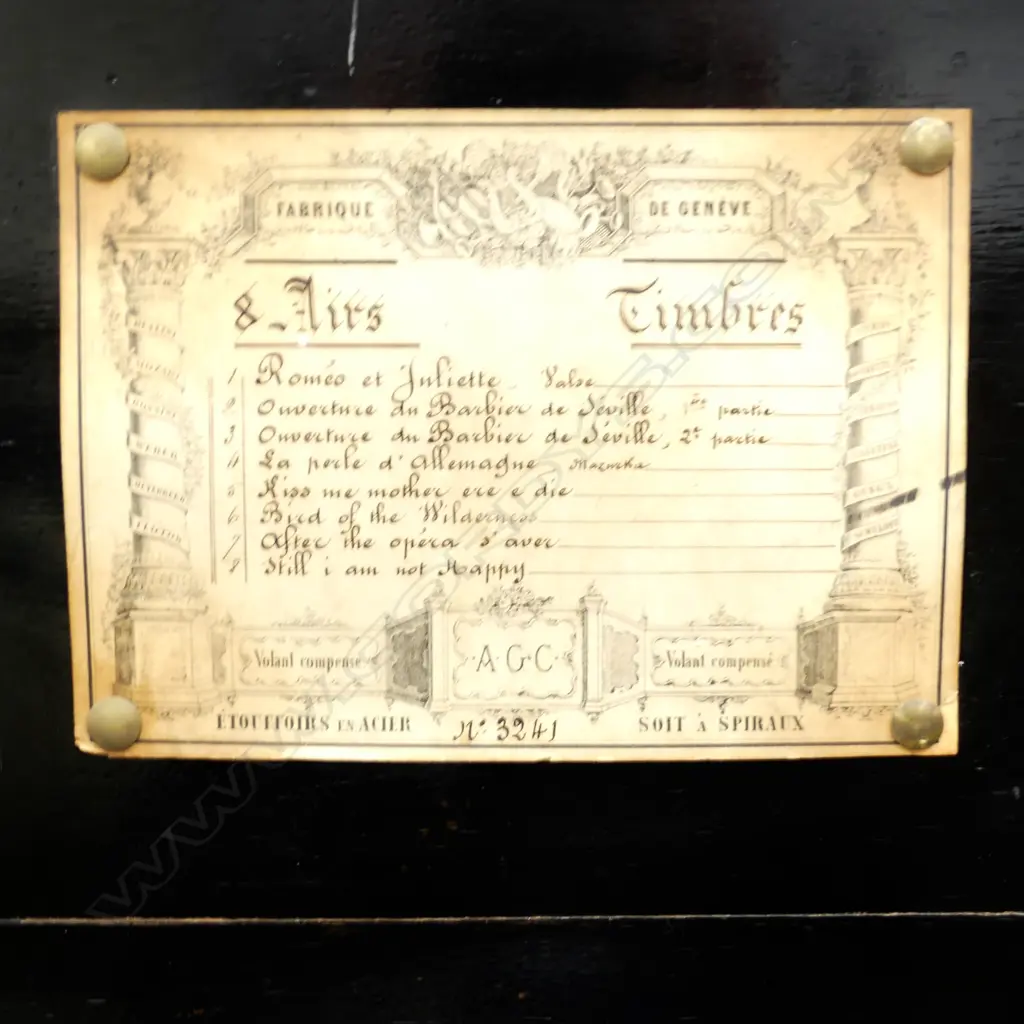 FABRIQUE DE GENÈVE
8 Airs Timbres
1 Roméo et Juliette Valse
2 Ouverture du Barbier de Séville, 1ère partie
3 Ouverture du Barbier de Séville, 2e partie
4 La perle d'Allemagne Mazurka
5 Kiss me mother ere e die
6 Bird of the Wilderness
7 After the opéra s'aver
8 Still i am not Happy
MOZART
WEBER
Volant compensé A.G.C. Volant compensé
ÉTOUFFOIRS EN ACIER No. 3241 SOIT À SPIRAUX